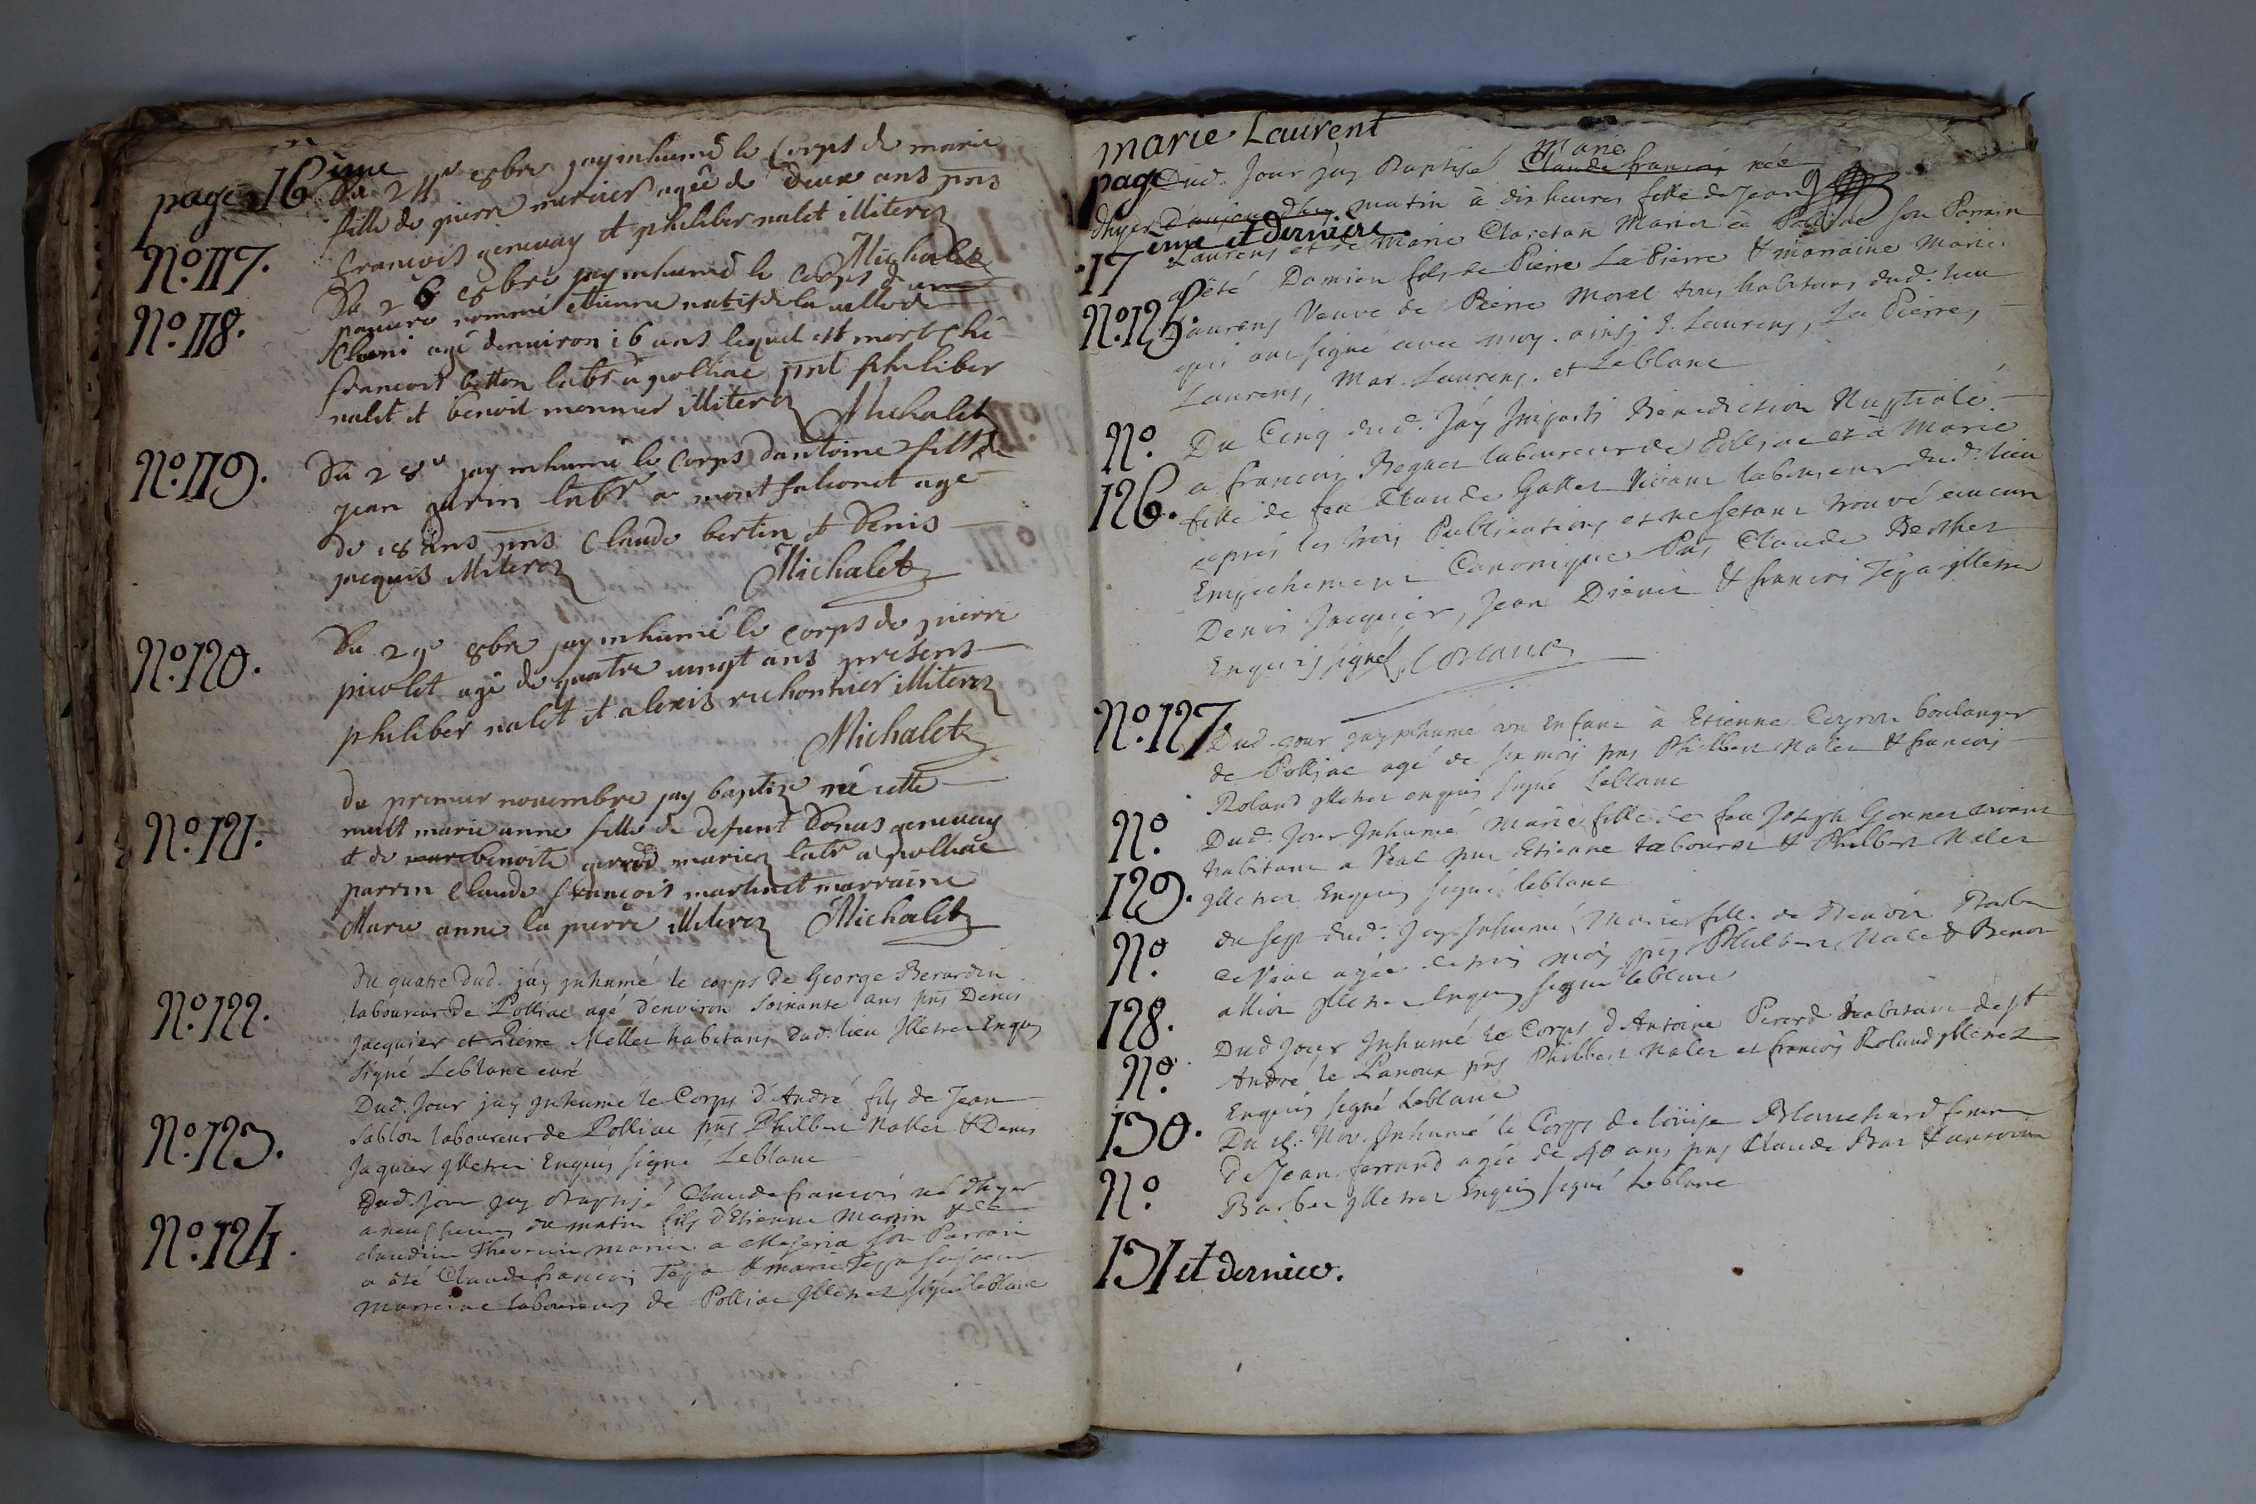 page 16 ème
Du 24e 8bre jay inhumé le Corps de marie
fille de pierre mercier agée de deux ans pns
francois genevay et philiber nalet illiterez
Michalet
N.o 117.
Du 26 8bre jay inhumé le corps d'une
pauvre nommé etienne natif de la vallé de
agé denviron 16 ans lequel est mort ché
francois betton labr a polliac pnt philiber
nalet et benoit monnier illiterez Michalet
N.o 118.
Du 28e jay inhumé le corps dantoine fils de
jean gurin labr a montfalconet agé
de 18 ans pns Claude bertin et Denis
jacquis illiterez Michalet
N.o 119.
Du 29e 8bre jay inhumé le corps de pierre
picolet agé de quatre vingt ans présens
philiber nalet et alexis richonnier illiterez
Michalet
N.o 120.
du premier novembre jay baptizé née cette
nuit marie anne fille de defunt Donas genevay
et de benoite mariez labr a polliac
parrin Claude francois martinet marraine
Marie anne la pierre illiterez Michalet
N.o 121.
du quatre dud. jáy inhumé le corps de George Berardin
laboureur de Polliac agé d'environ soixante ans pns Denis
Jacquier et Pierre Mellet habitans dud. lieu Illetrez Enquis
Signé Leblanc curé
N.o 122.
Dud. Jour jay inhumé le Corps d'André fils de Jean
Sablon laboureur de Polliac pns Philbert Nallet & Denis
Jaquier Illetrez Enquis signé Leblanc
N.o 123.
Dud. Jour jay Baptisé Claude francois né d'hyer
a neuf heures du matin fils d'Etienne Marin & de
claudine Thevenin mariez a son Parrain
a été Claude francois Teja & marie Teja sa soeur
Marreine laboureurs de Polliac Illetrez signé leblanc
N.o 124.
marie Laurent
page
17 ème et derniere.
Dud. Jour jay Baptisé Marie Claude francois née
dhyer d'aujourdhuy matin à dix heures fille de Jean
Laurens et de Marie Claretan Mariez à Polliac son Parrain
a été Damien fils de Pierre La Pierre & marraine Marie
Laurens Veuve de Pierre Morel tous habitans dud. lieu
qui ont signé avec moy. ainsy J. Laurens, La Pierre,
Laurens, Mar. Laurens. et Leblanc
N.o 125.
Du Cinq dud. Jáy Imparti Bénédiction Nuptiale
a francois Beguet laboureur de Polliac et à Marie
fille de feu Claude Gallet Vivant laboureur dud. lieu
après les trois Publications et ne setant trouvé aucun
Empechement Canonique Pns Claude Berthet
Denis Jacquier, Jean & francois Teja Illetrez
Enquis signé Leblanc
N.o
126.
Dud. jour jay inhumé un Enfant à Etienne Ceyron boulanger
de Polliac agé de six mois pns Philbert Nalet & francois
Roland Illetrez enquis signé Leblanc
N.o 127.
Dud. Jour Inhumé Marie fille de feu Joseph Gonnet vivant
habitant a Viac pns Etienne & Philbert Nalet
Illetrez Enquis signé leblanc
N.o
129.
du sept dud. Jay Inhumé Marie fille de Benoit
de Viac agée de mois pns Philbert Nalet & Benoit
Illetrez Enquis signé leblanc
N.o
128.
Dud Jour Inhumé le Corps d'Antoine Perard habitant de St
André le Panoux pns Philbert Nalet et francois Roland Illetrez
Enquis signé Leblanc
N.o
130.
Du Nov. Inhumé le Corps de loüise Blanchard femme
de Jean ferrand agée de 40 ans pns Claude Bar & antoine
Barbet Illetrez Enquis signé Leblanc
N.o
131 et dernier.